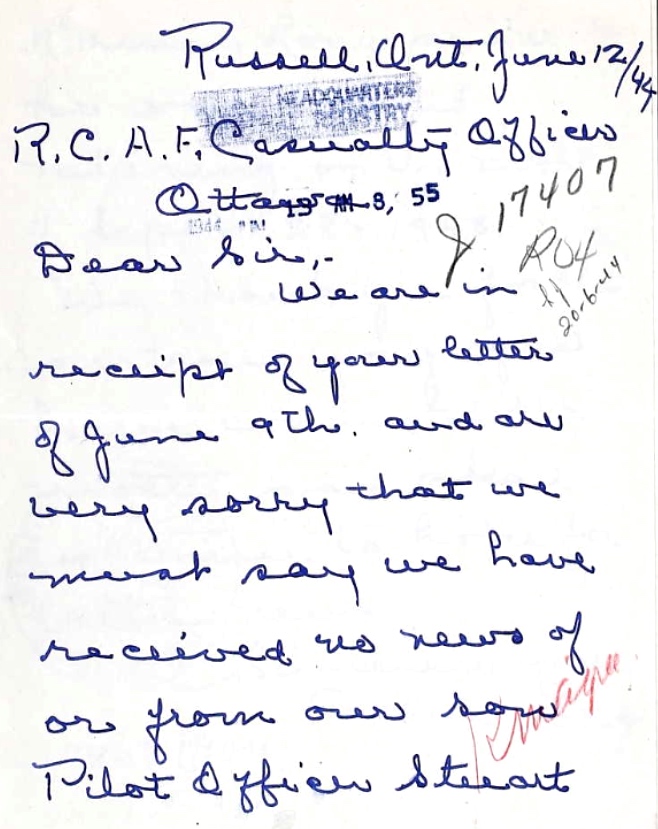 Russell, Ont. June 12/44
HEADQUARTERS
REGISTRY
R.C.A.F. Casualty Officer
Ottawa
8, 55
J 17407
Dear Sir,-
RO4
20-6-44
We are in
receipt of your letter
of June 9th. and are
very sorry that we
must say we have
received no news of
or from our son
Pilot Officer Stuart